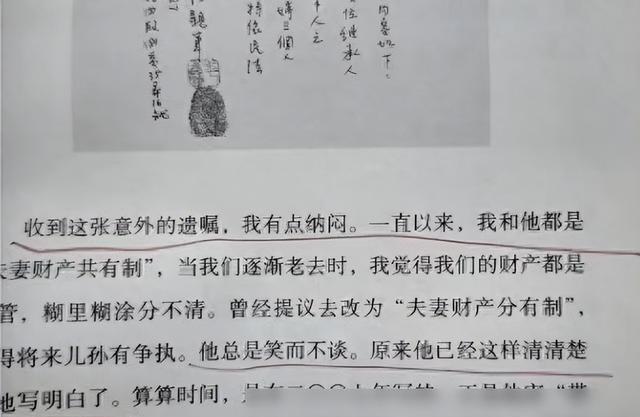 內容如下：
位繼承人
人之
三個人
特依民法
收到这张意外的遗嘱，我有点纳闷。一直以来，我和他都是
夫妻财产共有制”，当我们逐渐老去时，我觉得我们的财产都是
管，糊里糊涂分不清。曾经提议去改为“夫妻财产分有制”，
得将来儿孙有争执。他总是笑而不谈。原来他已经这样清清楚
地写明白了。算算时间，